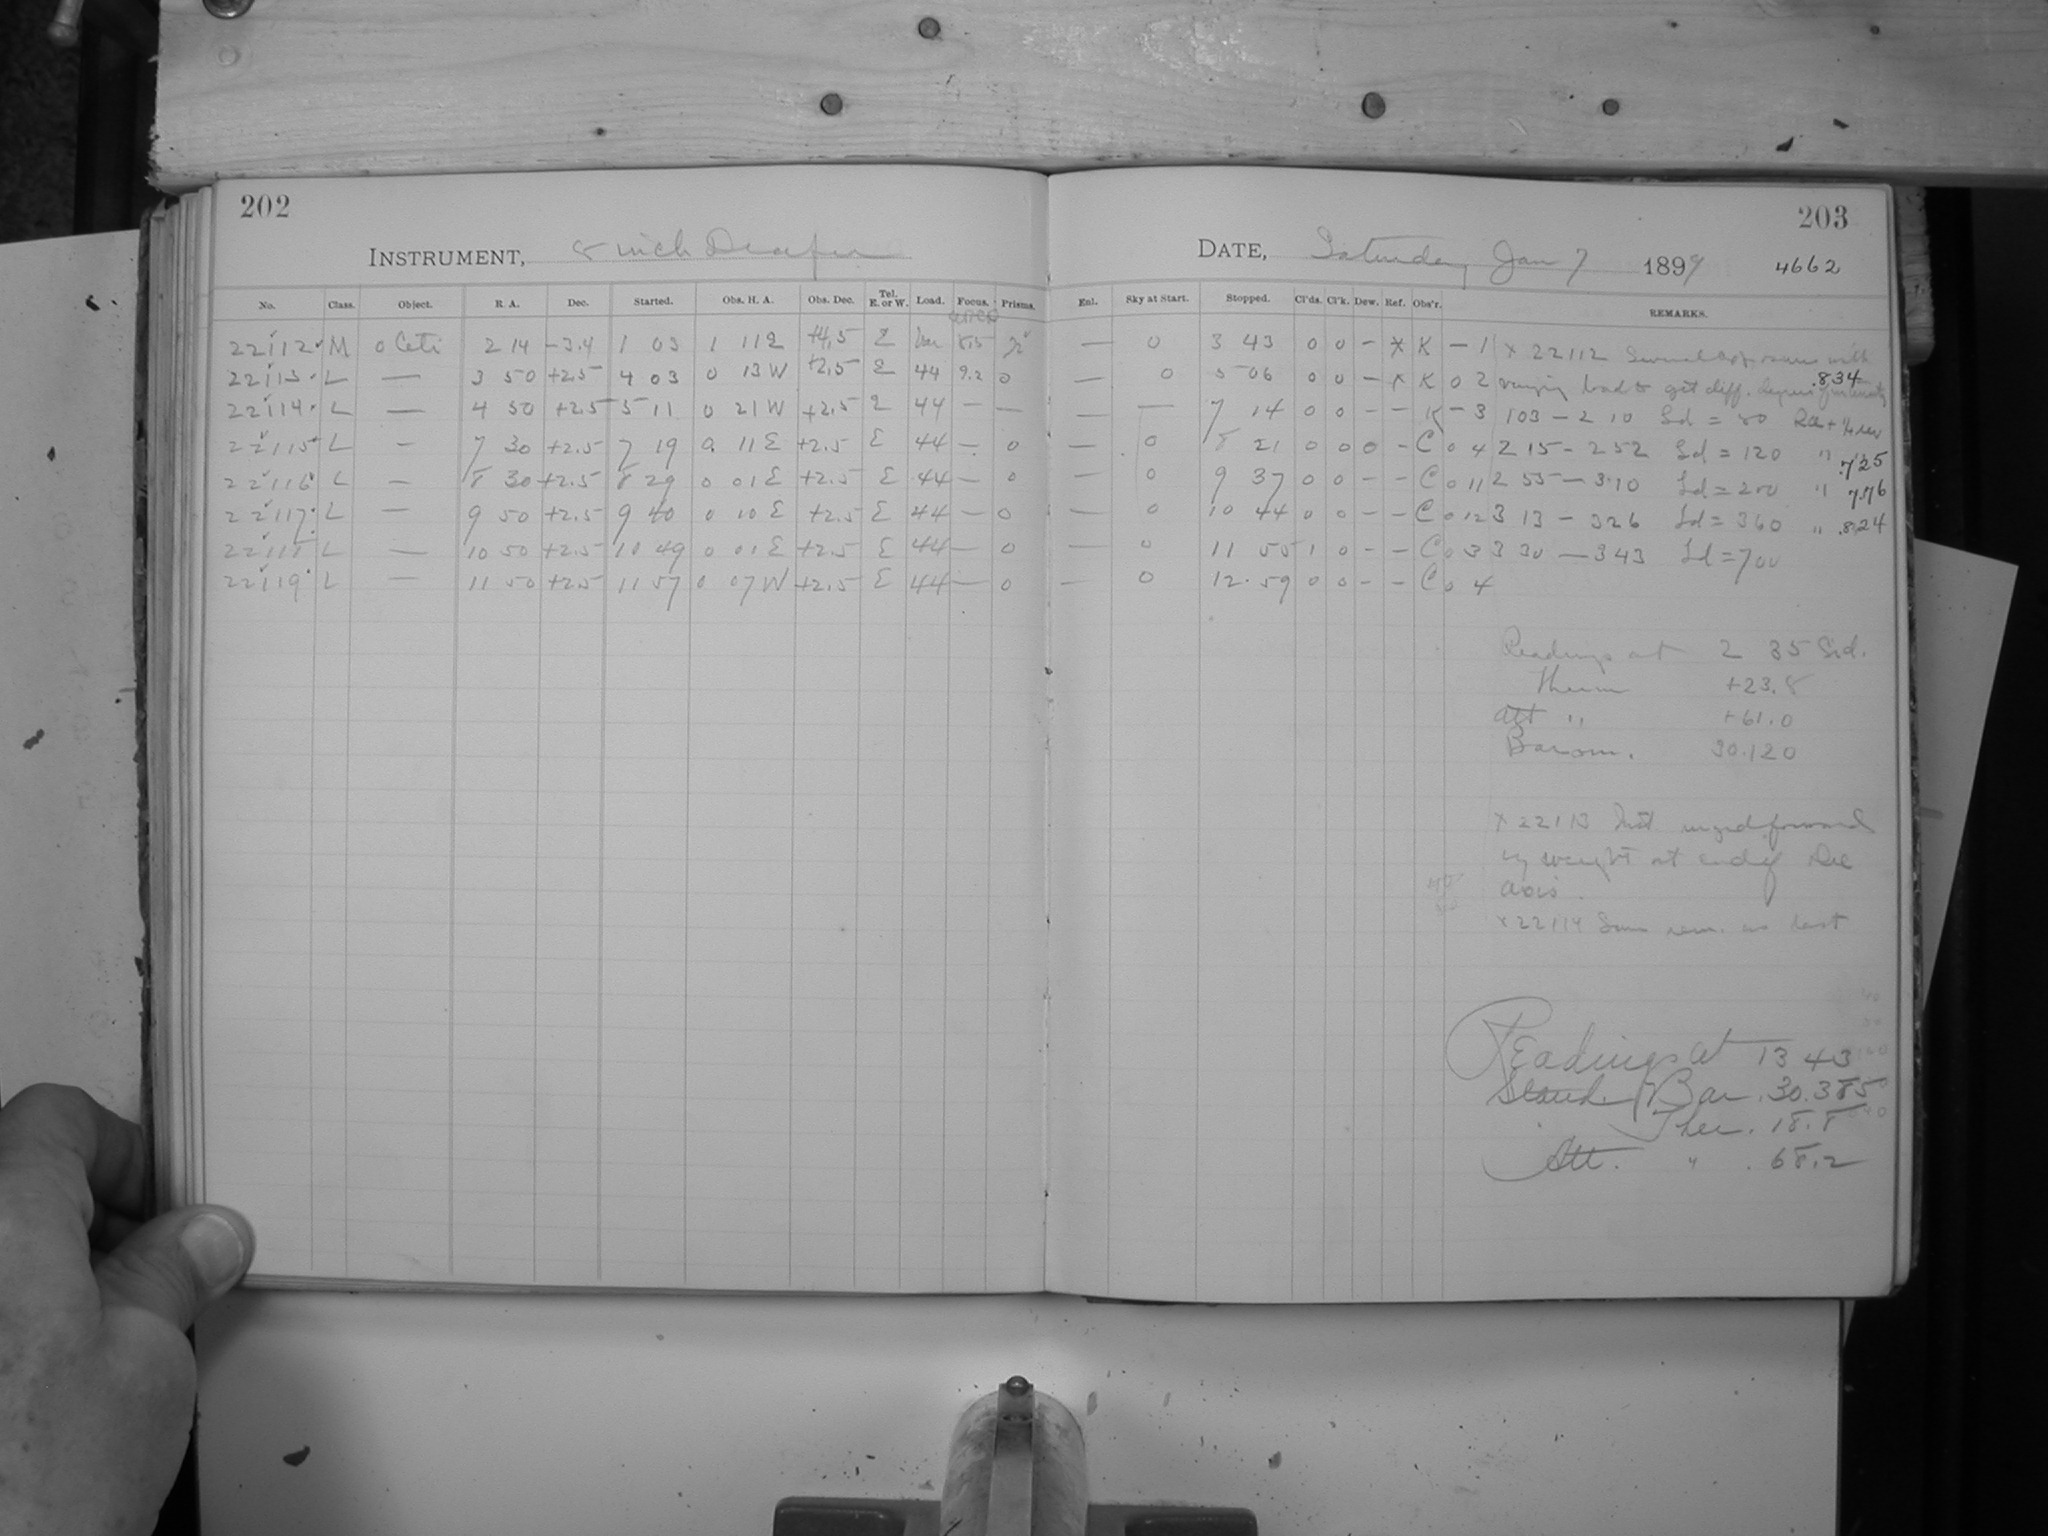 202
INSTRUMENT, 8 inch Draper
No. Class. Object. R. A. Dec. Started. Obs. H. A. Obs. Dec. Tel. E. or W. Load. Focus. Prisms.
22112 M o Ceti 2 14 -3.4 1 03 1 11 E +4.5 E Var 8.5
22113 L — 3 50 +2.5 4 03 0 13 W +2.5 E 44 9.2 0
22114 L — 4 50 +2.5 5 11 0 21 W +2.5 E 44 — —
22115 L — 7 30 +2.5 7 19 0 11 E +2.5 E 44 — 0
22116 L — 8 30 +2.5 8 29 0 01 E +2.5 E 44 — 0
22117 L — 9 50 +2.5 9 40 0 10 E +2.5 E 44 — 0
22118 L — 10 50 +2.5 10 49 0 01 E +2.5 E 44 — 0
22119 L — 11 50 +2.5 11 57 0 07 W +2.5 E 44 — 0
203
DATE, Saturday Jan 7 1899 4662
Enl. Sky at Start. Stopped. Cl'ds. Cl'k. Dew. Ref. Obs'r. REMARKS.
— 0 3 43 0 0 - * K - 1 x 22112 Several exposures with
— 0 5 06 0 0 - x K 0 2 varying load to get diff. degrees of intensity .834
— — 7 14 0 0 - - K - 3 103 - 2 10 Ld = 80
— 0 8 21 0 0 0 - C 0 4 2 15 - 2 52 Ld = 120 "
— 0 9 37 0 0 - - C 0 11 2 55 - 3 10 Ld = 200 " .725
— 0 10 44 0 0 - - C 0 12 3 13 - 3 26 Ld = 360 " .824
— 0 11 55 1 0 - - C 0 3 3 30 - 3 43 Ld = 700
— 0 12 59 0 0 - - C 0 4
Readings at 2 35 Sid.
Therm +23.8
Att " +61.0
Barom. 30.120
x 22113 Inst urged forward
by weight at end of Dec
axis.
x 22114 Same rem. as last
Readings at 13 43
Stand. Bar. 30.385
Ther. 18.8
Att. " 68.2